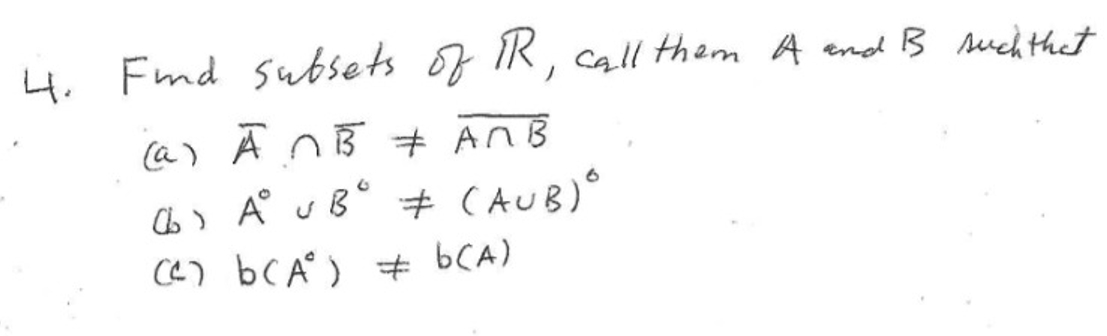 4. Find subsets of ℝ, call them A and B such that
(a) A̅ ∩ B̅ ≠ \overline{A∩B}
(b) A° ∪ B° ≠ (A∪B)°
(c) b(A°) ≠ b(A)